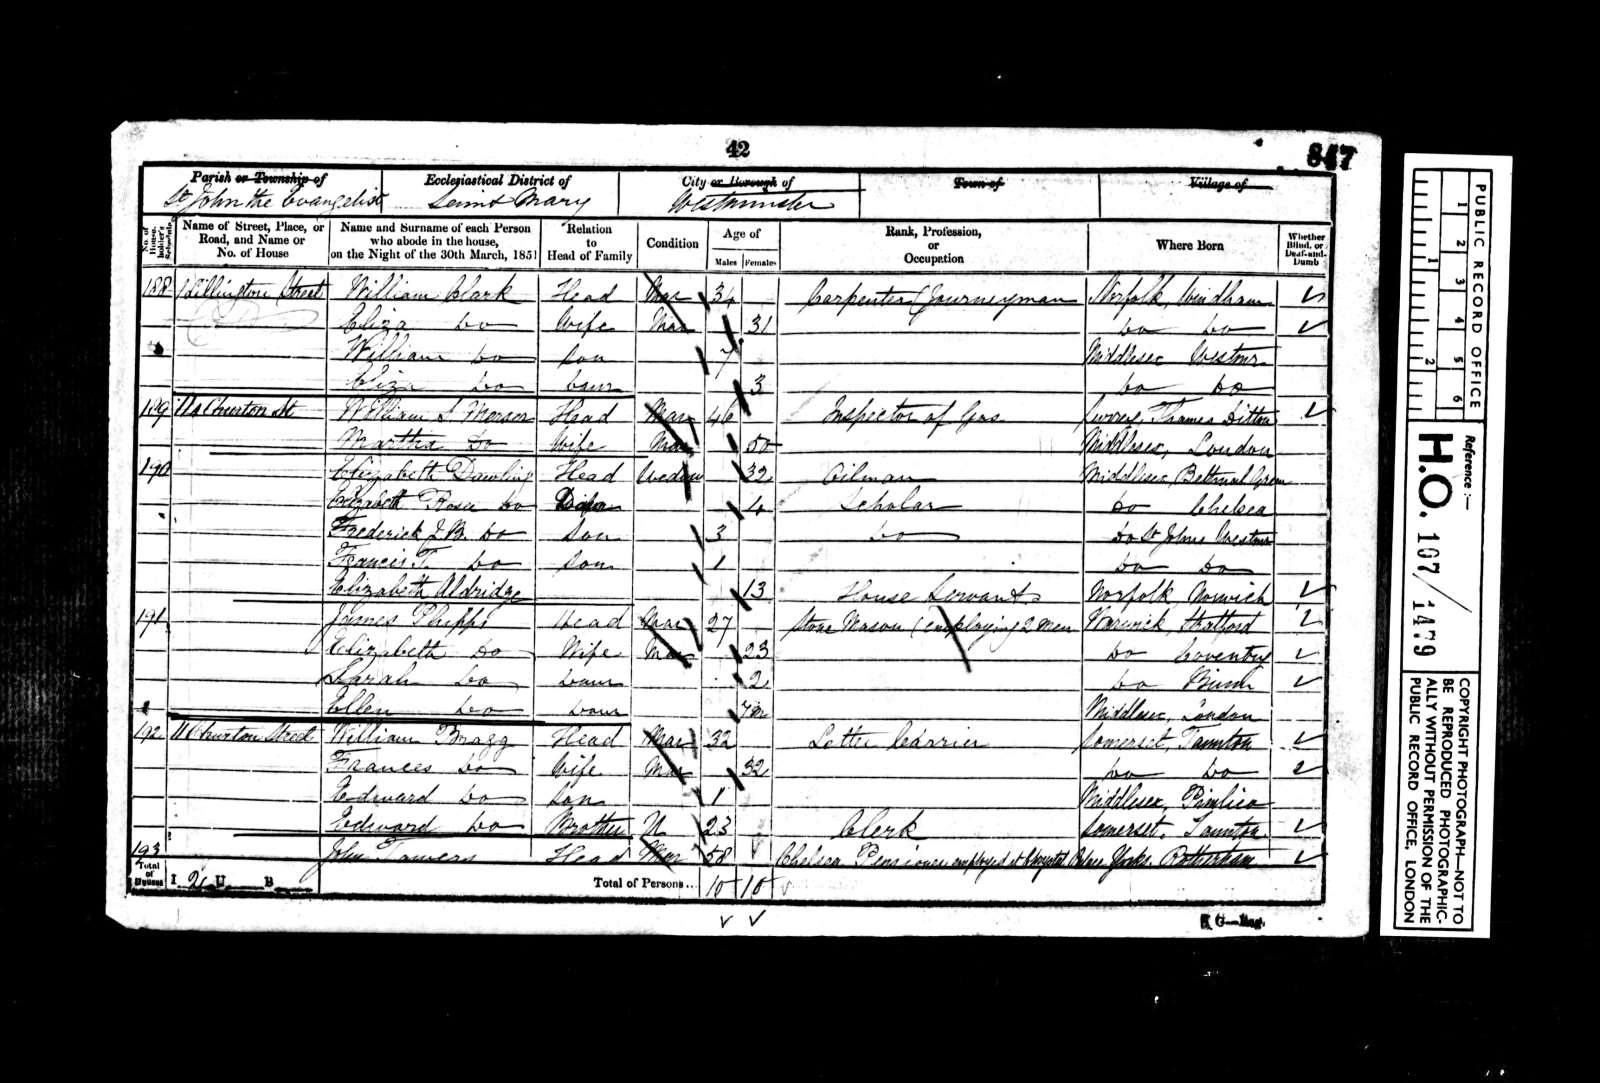 42
847
Parish or Township of
Ecclesiastical District of
City or Borough of
Town of
Village of
St John the Evangelist
Saint Mary
Westminster
No. of House-holder's Schedule
Name of Street, Place, or Road, and Name or No. of House
Name and Surname of each Person who abode in the house, on the Night of the 30th March, 1851
Relation to Head of Family
Condition
Age of
Males
Females
Rank, Profession, or Occupation
Where Born
Whether Blind, or Deaf-and-Dumb
188 Street William Clark Head Mar 34 Carpenter (Journeyman Norfolk, Windham
Eliza Do Wife Mar 31 Do Do
William Do Son 7 Middlesex Westmr
Eliza Do Daur 3 Do Do
189 Churton St William S. Head Mar 46 Inspector of Gas Surrey, Thames Ditton
Martha Do Wife Mar 50 Middlesex, London
190 Elizabeth Dawling Head Wedow 32 Oilman Middlesex, Bethnal Green
Elizabeth Rosa Do 4 Scholar Do Chelsea
Frederick J. B. Do Son 3 Do Do St Johns Westmr
Francis T. Do Son 1 Do Do
Elizabeth Aldridge 13 House Servant Norfolk, Norwich
191 James Phipps Head Mar 27 Stone Mason (employing 2 men Warwick, Stratford
Elizabeth Do Wife Mar 23 Do Coventry
Sarah Do Daur 2 Do Birm
Ellen Do Daur 7m Middlesex, London
192 11 Churton Street William Bragg Head Mar 32 Letter Carrier Somerset, Taunton
Frances Do Wife Mar 32 Do Do
Edward Do Son 1 Middlesex, Pimlico
Edward Do Brother U 23 Clerk Somerset, Taunton
193 John Towers Head Mar 58 Chelsea Pensioner employed at Crystal Palace Yorks. Rotherham
Total of Houses
I 2 U B
Total of Persons...
10 10
PUBLIC RECORD OFFICE
1 2 3 4 5 6
1 2
Reference :—
H.O. 107/1479
COPYRIGHT PHOTOGRAPH—NOT TO
BE REPRODUCED PHOTOGRAPHIC-
ALLY WITHOUT PERMISSION OF THE
PUBLIC RECORD OFFICE, LONDON